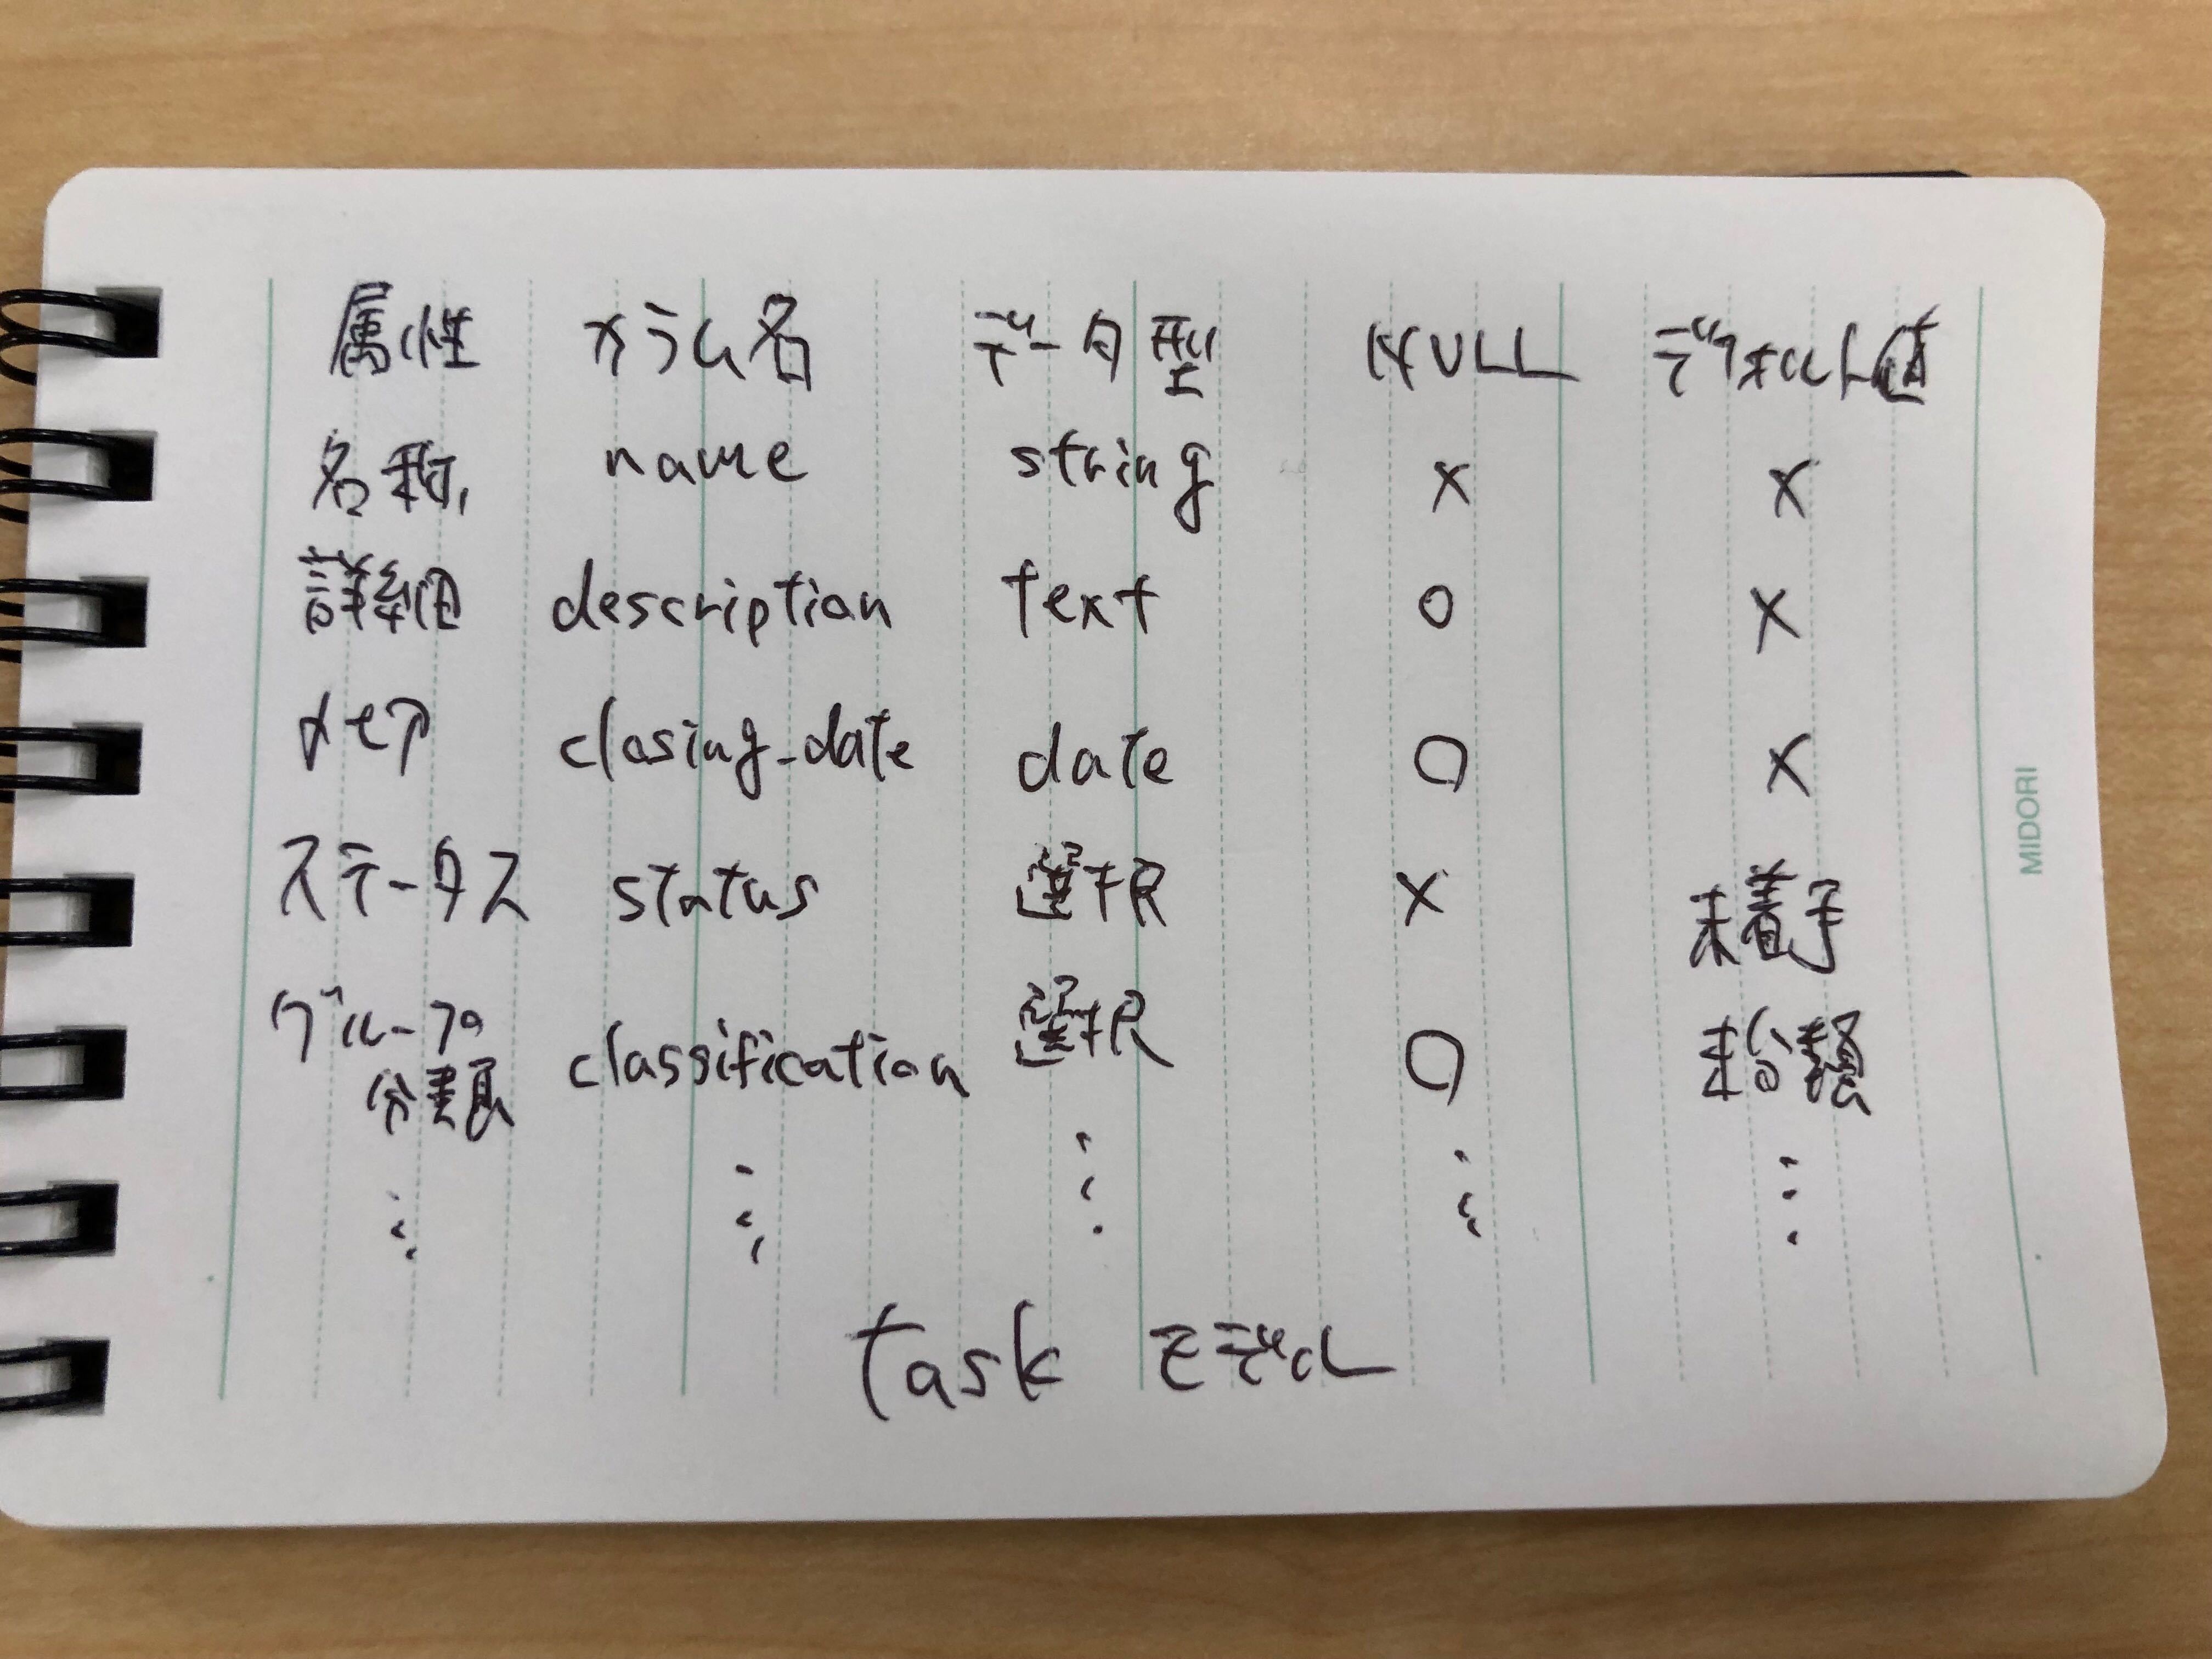 属性 カラム名 データ型 NULL デフォルト値
名称 name string × ×
詳細 description text ○ ×
closing_date date ○ ×
ステータス status 選択 × 未着手
グループ 分類 classification 選択 ○ 未分類
⋮ ⋮ ⋮ ⋮ ⋮
Task モデル
MIDORI